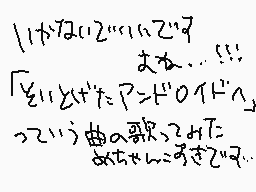 いかないでいいです
よね…!!!
「そいとげたアンドロイドへ」
っていう曲の歌ってみた
めちゃんこすきです…